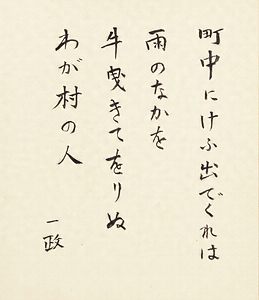 町中にけふ出でくれは
雨のなかを
牛曳きてをりぬ
わが村の人
一政